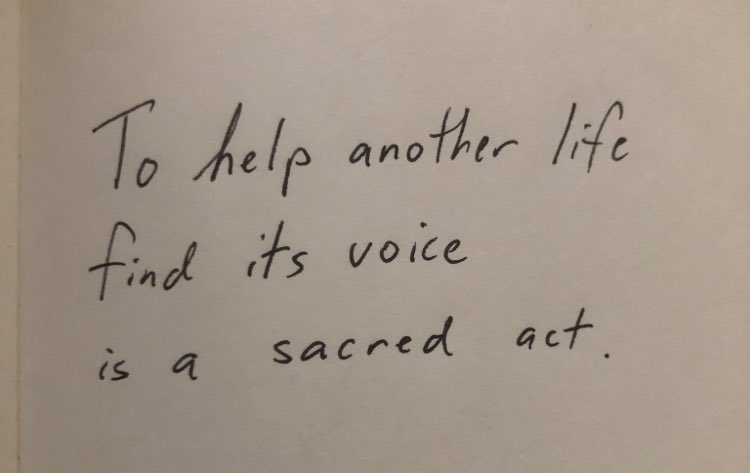 To help another life
find its voice
is a sacred act.